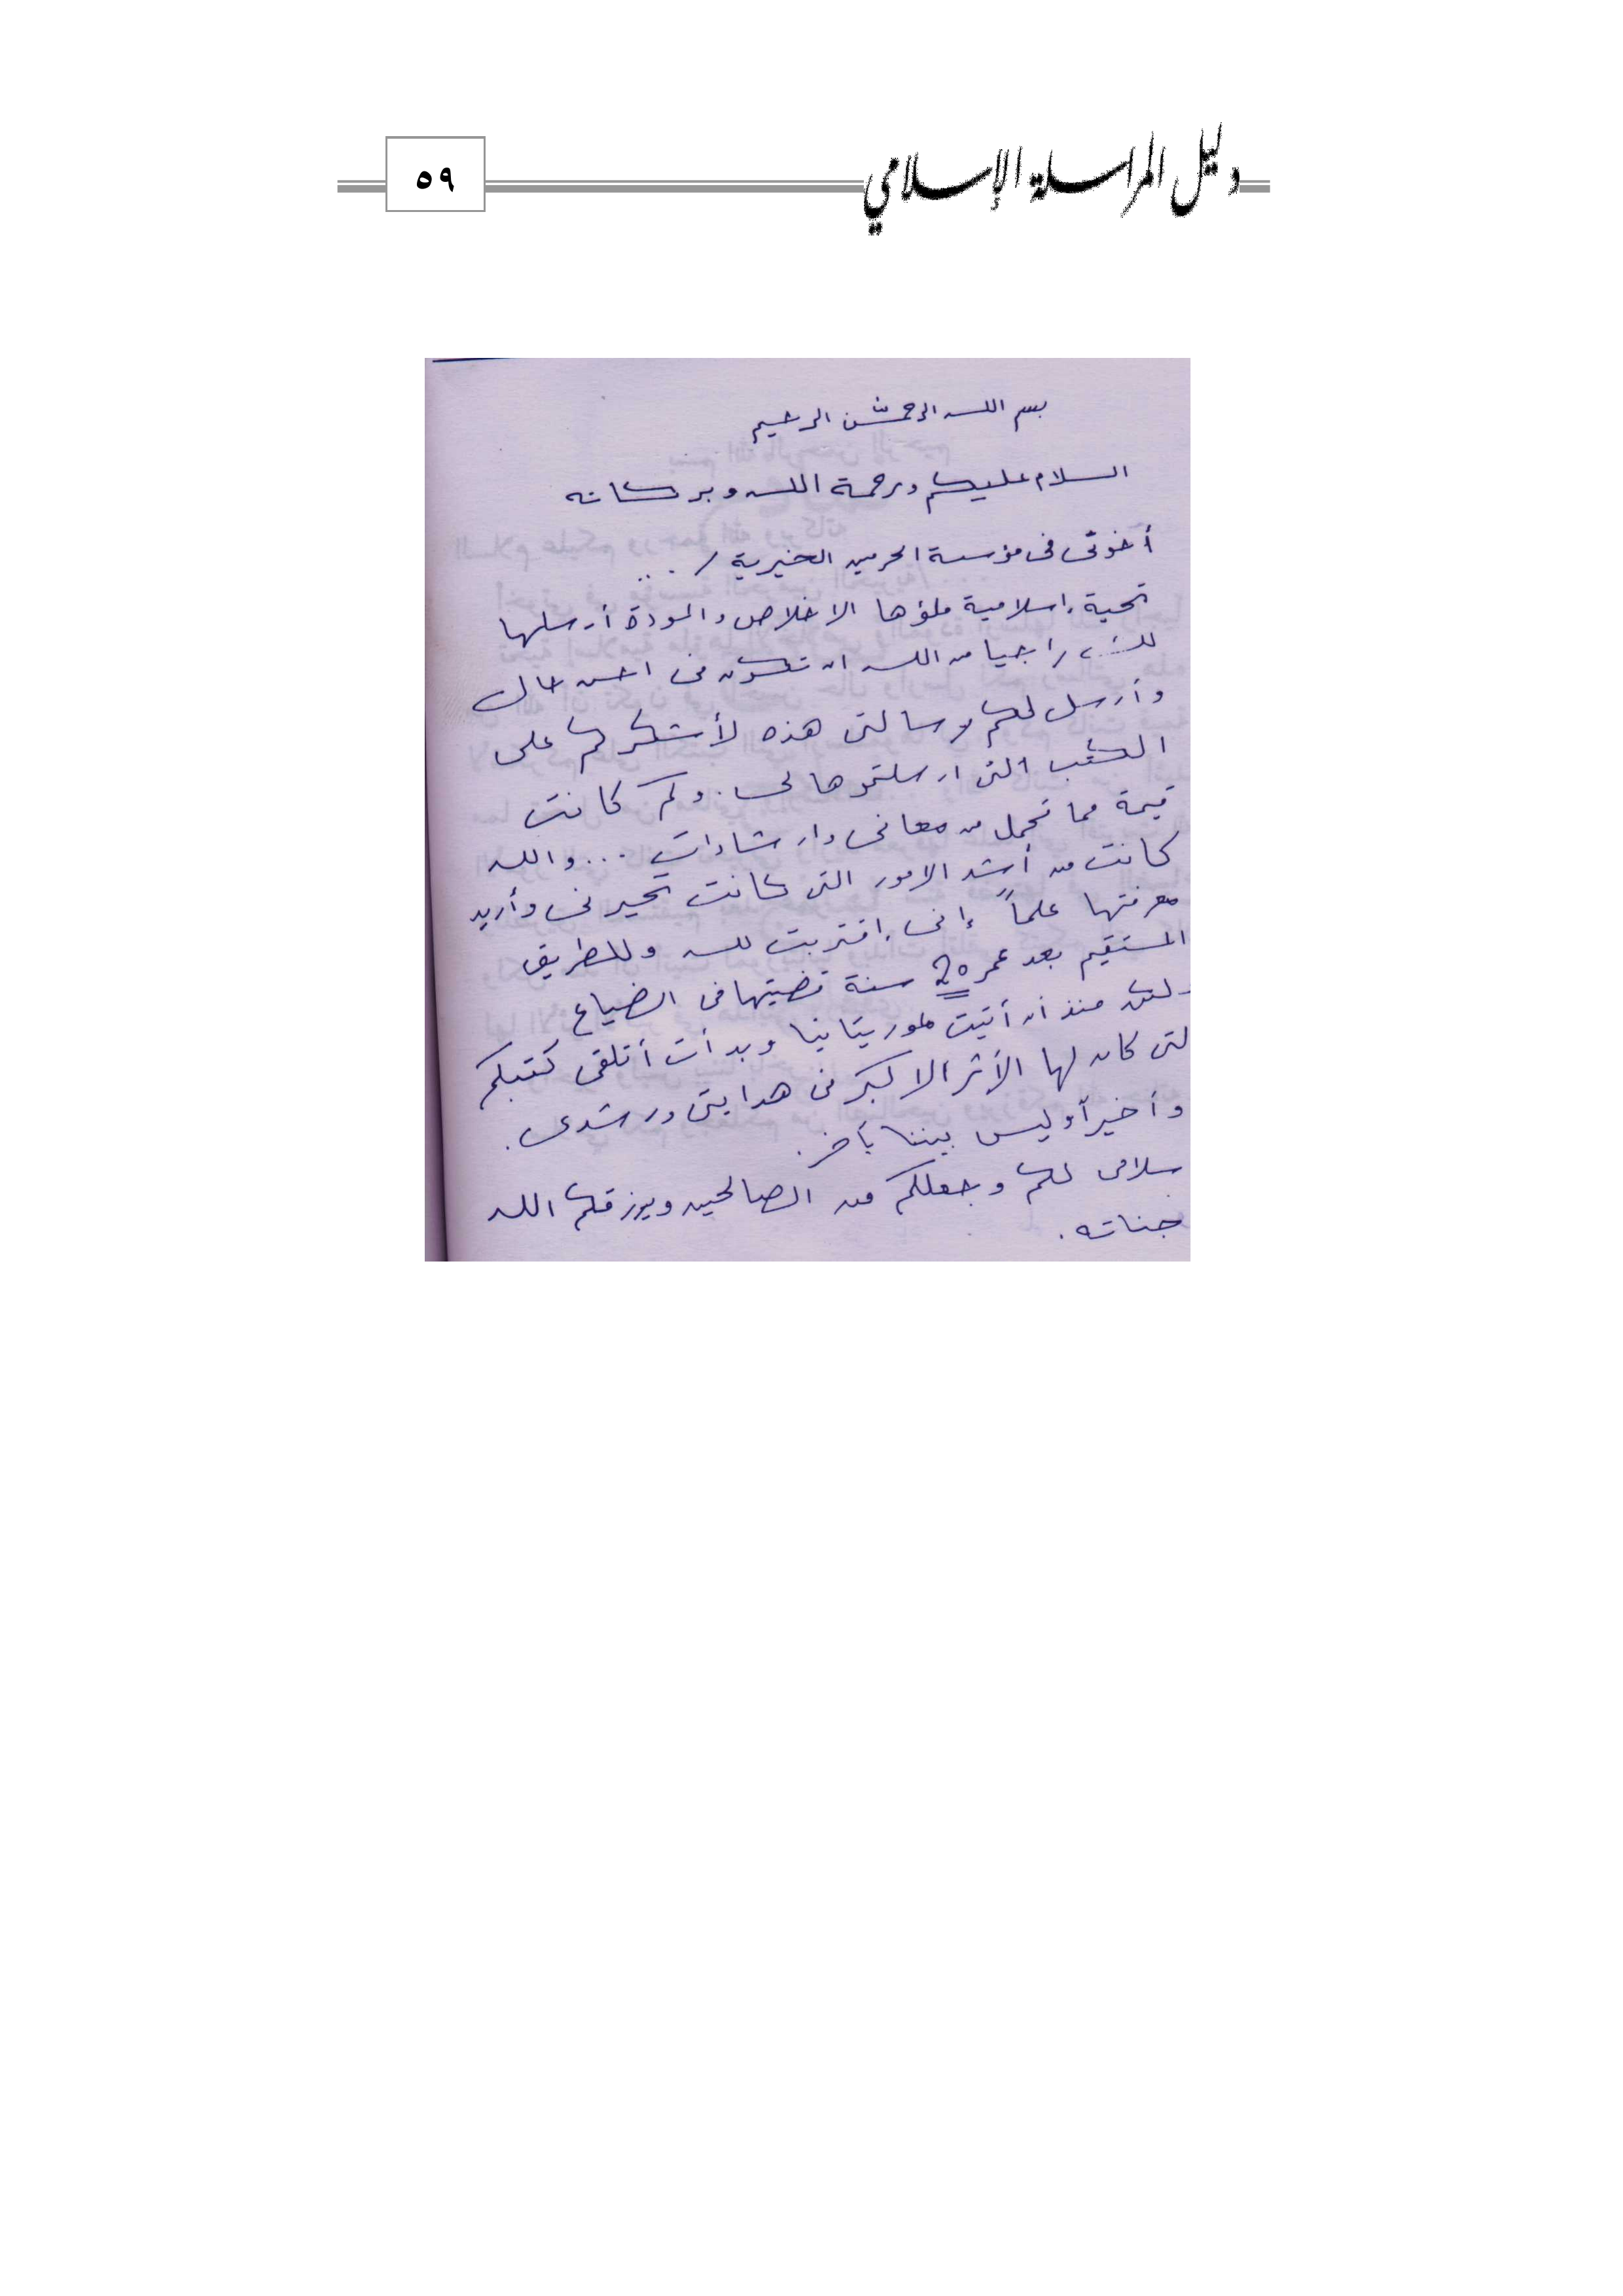 دليل المراسلة الإسلامي
٥٩
بسم الله الرحمن الرحيم
السلام عليكم ورحمة الله وبركاته
أخوتى فى مؤسسة الحرمين الخيرية / ...
تحية إسلامية ملؤها الاخلاص والمودة أرسلها
راجيا من الله ان تكون فى احسن حال
وأرسل لكم رسالتى هذه لأشكركم على
الكتب التى ارسلتموها لى . وكم كانت
قيمة مما تحمل من معانى وارشادات ... والله
كانت من أشد الامور التى كانت تحيرنى وأريد
معرفتها علماً إنى إقتربت لله وللطريق
المستقيم بعد عمر 20 سنة قضيتها فى الضياع
ولكن منذ أن أتيت لموريتانيا وبدأت أتلقى كتبكم
لتى كان لها الأثر الاكبر فى هدايتى ورشدى .
وأخيرآ وليس بيننا بآخر .
سلامى لكم وجعلكم من الصالحين ويرزقكم الله
جناته .